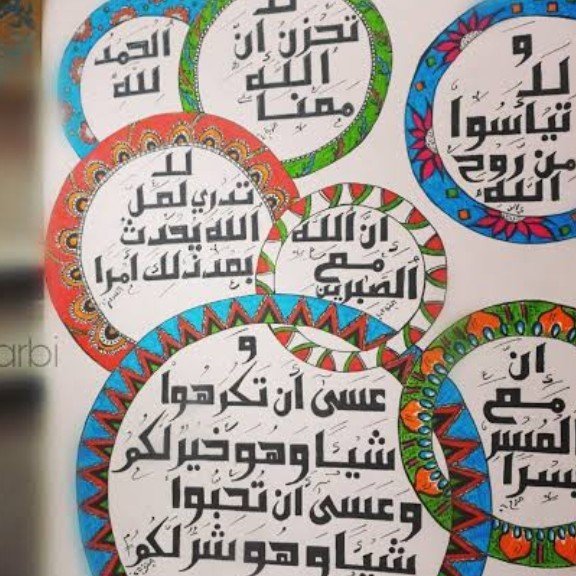 و
لا
تيأسوا
من روح
الله
لا
تحزن إن
الله
معنا
الحمد
لله
لا
تدري لعل
الله يحدث
بعد ذلك أمرا
إنّ الله
مع
الصبرين
و
عسى أن تكرهوا
شيئا وهو خير لكم
وعسى أن تحبوا
شيئا وهو شر لكم
ان
مع
العسر
يسرا
arbi